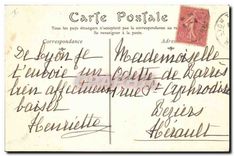 Carte Postale
Tous les pays étrangers n'acceptent pas la correspondance au recto
Se renseigner à la poste
Correspondance
Adresse
De Lyon je
t'envoie un
bien affectueux
baiser
Henriette
Mademoiselle
Odette de Barrès
rue St Aphrodise
Béziers
Hérault